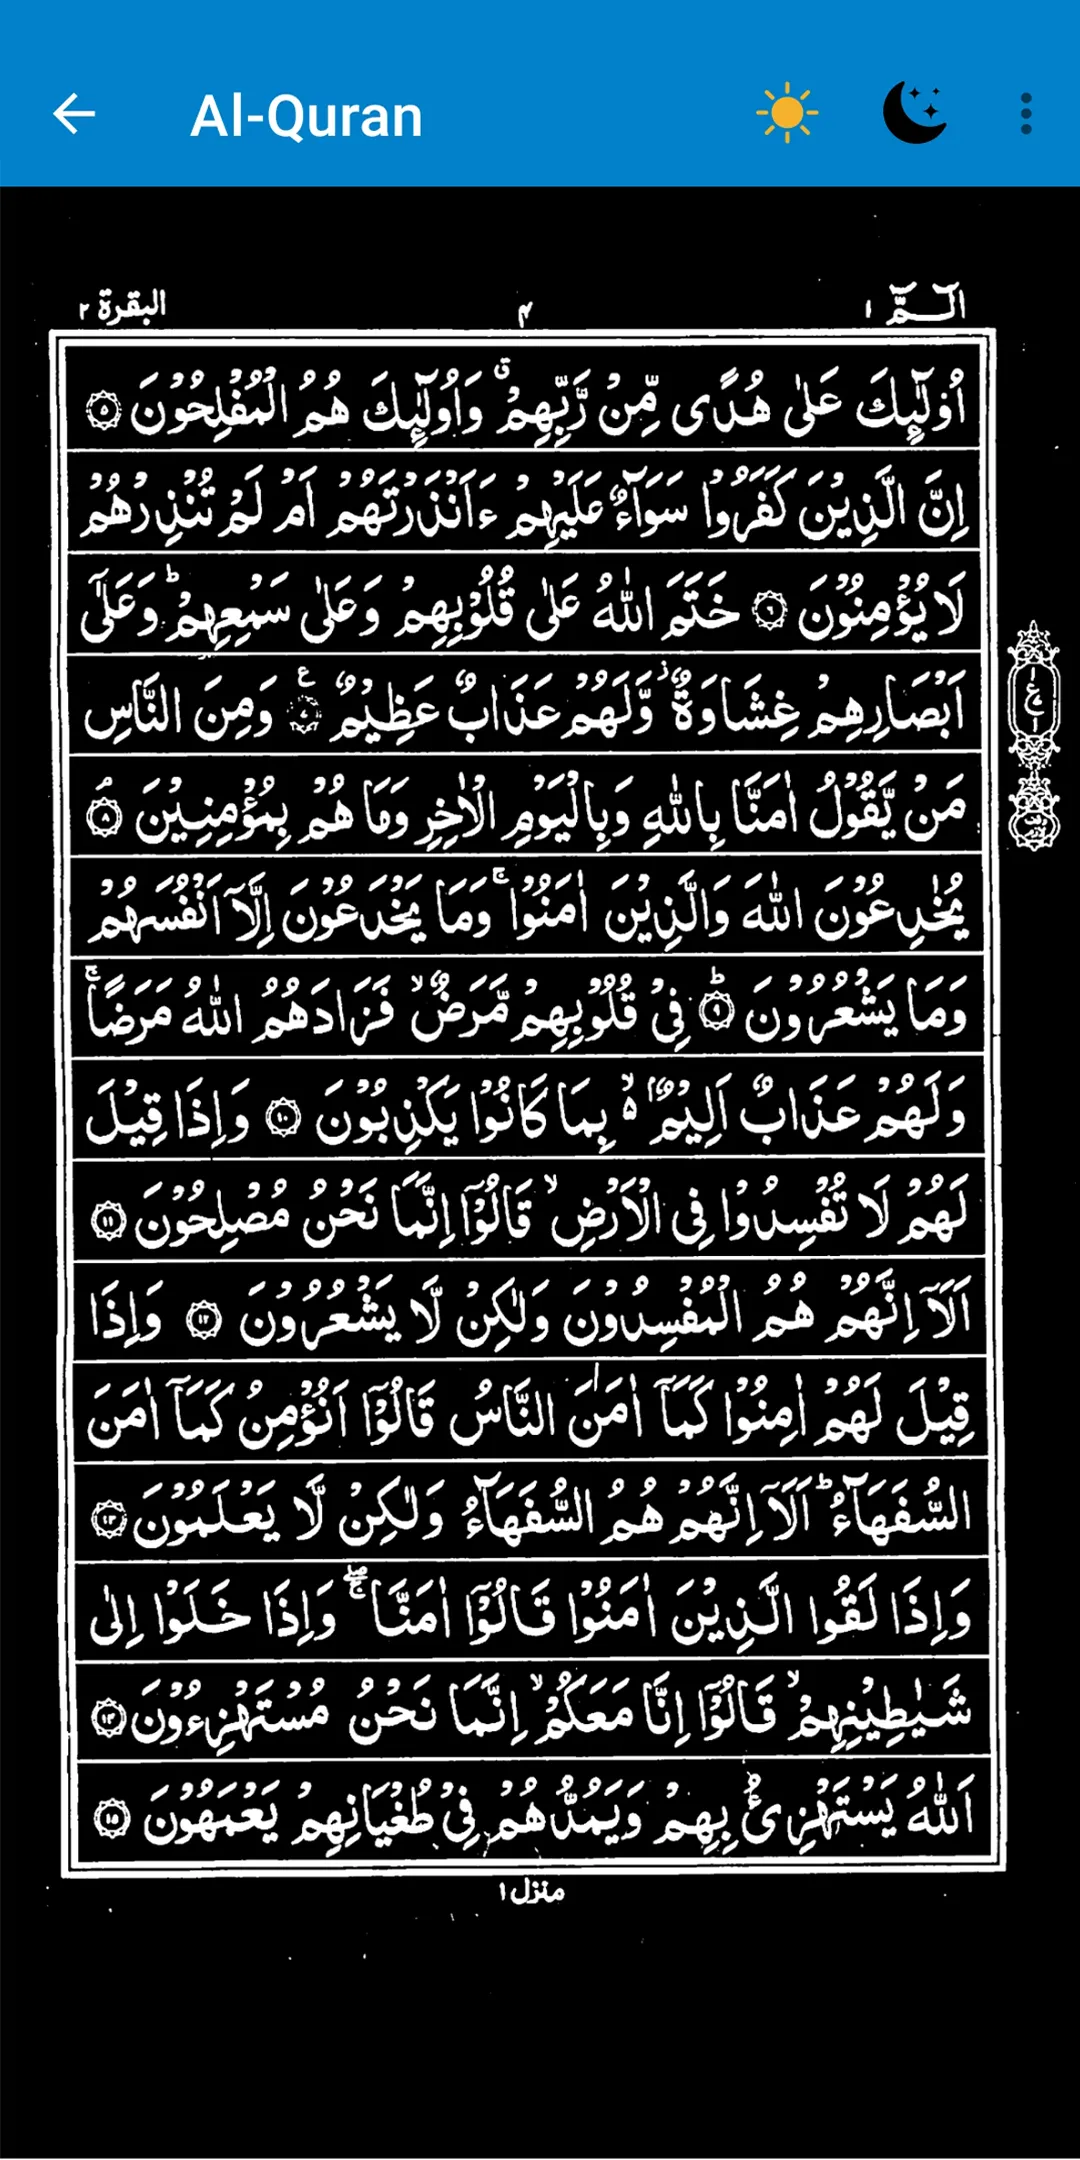 Al-Quran
الٓـمّٓ ١
۴
البقرة ٢
اُولٰٓئِكَ عَلٰى هُدًى مِّنْ رَّبِّهِمْ ۗ وَاُولٰٓئِكَ هُمُ الْمُفْلِحُوْنَ ۵
اِنَّ الَّذِيْنَ كَفَرُوْا سَوَآءٌ عَلَيْهِمْ ءَاَنْذَرْتَهُمْ اَمْ لَمْ تُنْذِرْهُمْ
لَا يُؤْمِنُوْنَ ۶ خَتَمَ اللّٰهُ عَلٰى قُلُوْبِهِمْ وَعَلٰى سَمْعِهِمْ ؕ وَعَلٰٓى
اَبْصَارِهِمْ غِشَاوَةٌ ۫ وَّلَهُمْ عَذَابٌ عَظِيْمٌ ۷ ع وَمِنَ النَّاسِ
مَنْ يَّقُوْلُ اٰمَنَّا بِاللّٰهِ وَبِالْيَوْمِ الْاٰخِرِ وَمَا هُمْ بِمُؤْمِنِيْنَ ۘ ۸
يُخٰدِعُوْنَ اللّٰهَ وَالَّذِيْنَ اٰمَنُوْا ۚ وَمَا يَخْدَعُوْنَ اِلَّآ اَنْفُسَهُمْ
وَمَا يَشْعُرُوْنَ ؕ ۹ فِيْ قُلُوْبِهِمْ مَّرَضٌ ۙ فَزَادَهُمُ اللّٰهُ مَرَضًا ۚ
وَلَهُمْ عَذَابٌ اَلِيْمٌۢ ۙ۵ بِمَا كَانُوْا يَكْذِبُوْنَ ۱۰ وَاِذَا قِيْلَ
لَهُمْ لَا تُفْسِدُوْا فِى الْاَرْضِ ۙ قَالُوْٓا اِنَّمَا نَحْنُ مُصْلِحُوْنَ ۱۱
اَلَآ اِنَّهُمْ هُمُ الْمُفْسِدُوْنَ وَلٰكِنْ لَّا يَشْعُرُوْنَ ۱۲ وَاِذَا
قِيْلَ لَهُمْ اٰمِنُوْا كَمَآ اٰمَنَ النَّاسُ قَالُوْٓا اَنُؤْمِنُ كَمَآ اٰمَنَ
السُّفَهَآءُ ؕ اَلَآ اِنَّهُمْ هُمُ السُّفَهَآءُ وَلٰكِنْ لَّا يَعْلَمُوْنَ ۱۳
وَاِذَا لَقُوا الَّذِيْنَ اٰمَنُوْا قَالُوْٓا اٰمَنَّا ۖۚ وَاِذَا خَلَوْا اِلٰى
شَيٰطِيْنِهِمْ ۙ قَالُوْٓا اِنَّا مَعَكُمْ ۙ اِنَّمَا نَحْنُ مُسْتَهْزِءُوْنَ ۱۴
اَللّٰهُ يَسْتَهْزِئُ بِهِمْ وَيَمُدُّهُمْ فِيْ طُغْيَانِهِمْ يَعْمَهُوْنَ ۱۵
منزل ١